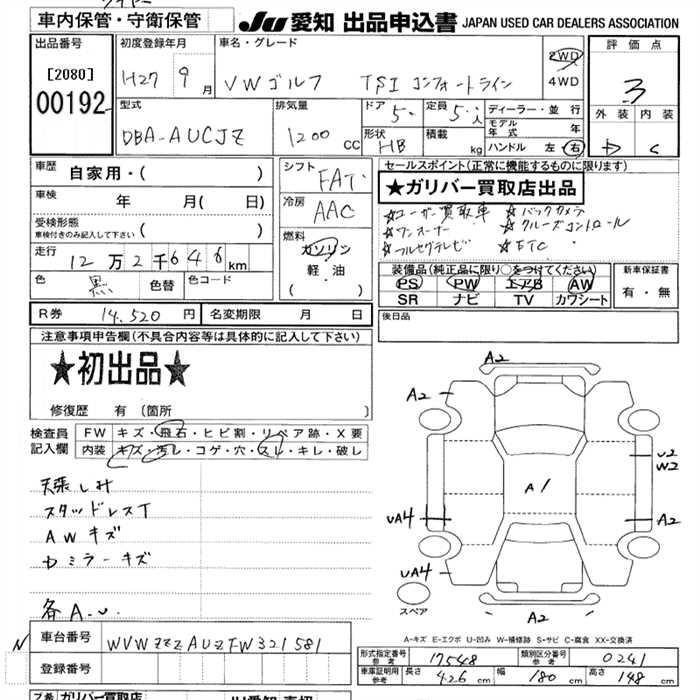 車内保管・守衛保管
JU 愛知 出品申込書 JAPAN USED CAR DEALERS ASSOCIATION
出品番号
[2080]
00192
初度登録年月
H27 9月
車名・グレード
VWゴルフ TSI コンフォートライン
2WD
4WD
評価点
3
外装 内装
D C
型式
DBA-AUCJZ
排気量
1200 cc
ドア 5
定員 5 人
形状 HB
積載 kg
ディーラー・並行
モデル年式 年
ハンドル 左 右
車歴 自家用・( )
車検 年 月( 日)
受検形態
車検付きのみ記入して下さい ( )
走行 12万2千646km
色 黒 色替 色コード
シフト FAT
冷房 AAC
燃料
ガソリン
軽油
( ・ )
セールスポイント(正常に機能するものに限ります)
★ガリバー買取店出品
☆ユーザー買取車 ☆バックカメラ
☆ワンオーナー ☆クルーズコントロール
☆フルセグテレビ ☆ETC
装備品(純正品に限り○をつけてください)
PS PW エアB AW
SR ナビ TV カワシート
新車保証書
有・無
R券 14,520円 名変期限 月 日
後日品
注意事項申告欄(不具合内容等は具体的に記入して下さい)
★初出品★
修復歴 有(箇所 )
検査員記入欄
FW キズ・飛石・ヒビ割・リペア跡・X要
内装 キズ・汚レ・コゲ・穴・スレ・キレ・破レ
天張しみ
スタッドレスT
AWキズ
ドミラーキズ
各A.U.
A2
A2
U2
W2
A1
UA4
A2
UA4
A2
スペア
A-キズ E-エクボ U-凹み W-補修跡 S-サビ C-腐食 XX-交換済
N
車台番号 WVWZZZAUZFW321581
登録番号
形式指定番号 参考 17548
類別区分番号 参考 0241
車庫証明用 参考 長さ 426cm 幅 180cm 高さ 148cm